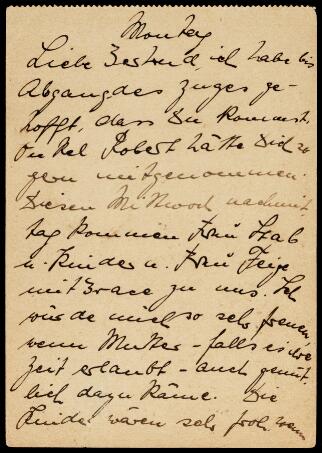 Montag
Liebe Gertrud, ich habe bis
Abgang des Zuges ge-
hofft, dass Du kommst.
Onkel Robert hätte Dich so
gern mitgenommen.
Diesen Mittwoch nachmit-
tag kommen Frau Szab
u. Kinder u. Frau Feige
mit Grace zu uns. Ich
würde mich so sehr freuen,
wenn Mutter - falls es ihre
Zeit erlaubt - auch gemüt-
lich dazu käme. Die
Kinder wären sehr froh, wenn